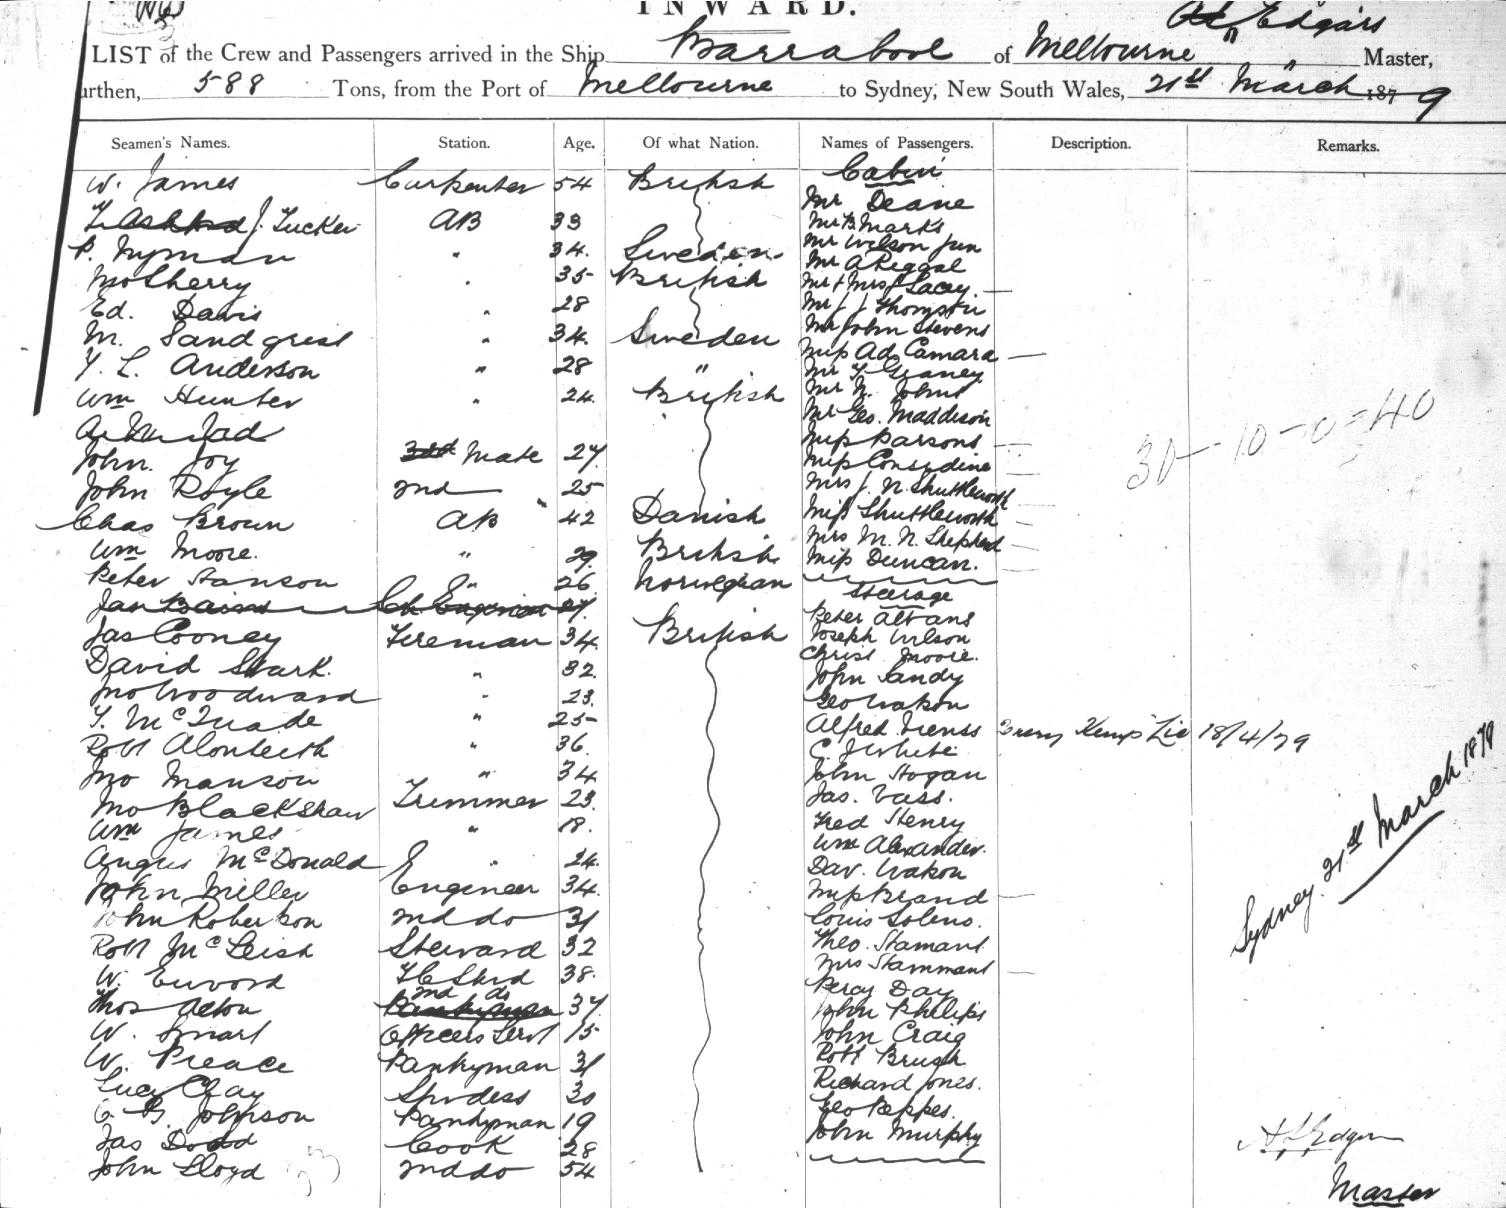 INWARD.
LIST of the Crew and Passengers arrived in the Ship Barrabool of Melbourne Edgars Master,
urthen, 588 Tons, from the Port of Melbourne to Sydney, New South Wales, 21st March 1879
Seamen's Names. Station. Age. Of what Nation. Names of Passengers. Description. Remarks.
W. James Carpenter 54 British
J. Tucker AB 33
P. Nyman " 34. Sweden
Jno Sherry . 35 British
Ed. Davis " 28
M. Sandgrist " 34. Sweden
Y. L. Anderson " 28 "
Wm Hunter " 24 British
John Joy Mate 27
John Royle 2nd " 25
Chas Brown AB 42 Danish
Wm Moore. " 29. British
Peter Hanson " 26 Norwegian
Jas Bains Ch Engineer 27.
Jas Cooney Fireman 34. British
David Stark. " 32.
Jno Woodward " 23.
T. McQuade " 25
Robt Alonteith " 36.
Jno Manson " 34
Jno Blackshaw Trimmer 23.
Wm James " 18.
Angus McDonald " 24.
John Miller Engineer 34.
John Robertson 2nd do 31
Robt McLeish Steward 32
W. 38.
Thos Acton 2nd do Pantryman 37
W. Smart Officers Servt 15
W. Preace Pantryman 31
Lucy Clay Stwdess 30
C. B. Johnson Pantryman 19
Jas Dodd Cook 28
John Lloyd 2nd do 54
Cabin
Mr Deane
Mr B. Marks
Mr Wilson Jun
Mr A Reggal
Mr & Mrs J Lacey
Mr J J Thompson
Mr John Stevens
Miss Ad. Camara
Mr T Graney
Mr N. Johns
Mr Geo. Maddison
Miss Parsons
Miss Considine
Mrs J. N. Shuttleworth
Miss Shuttleworth
Mrs M. N. Shepherd
Miss Duncan.
Steerage
Peter Alvans
Joseph Wilson
Christ Moore.
John Sandy
Geo Watson
Alfred 18/4/79
C J White
John Hogan
Jas. Vass.
Fred Henry
Wm Alexander.
Dav. Watson
Miss Brand
Louis Solens.
Theo. Stamant
Mrs Stammant
Percy Day
John Philips
John Craig
Robt Brush
Richard Jones.
Geo Peppes.
John Murphy
30 - 10 - 0 = 40
Sydney. 21st March 1879
Master